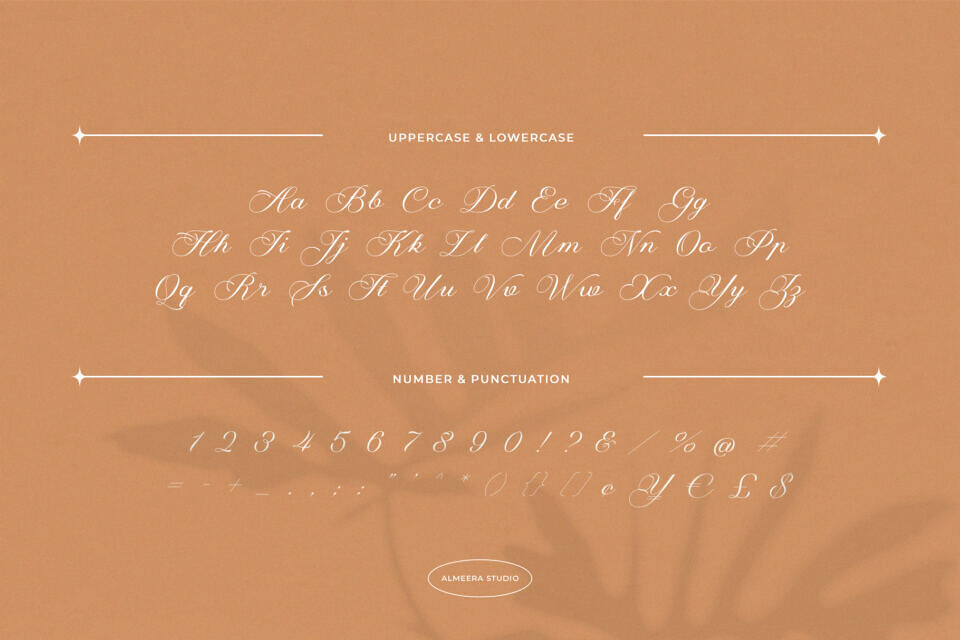 UPPERCASE & LOWERCASE
Aa Bb Cc Dd Ee Ff Gg
Hh Ii Jj Kk Ll Mm Nn Oo Pp
Qq Rr Ss Tt Uu Vv Ww Xx Yy Zz
NUMBER & PUNCTUATION
1 2 3 4 5 6 7 8 9 0 ! ? & / % @ #
= - + _ . , ; : " ' ^ * () {} [] ¢ ¥ € £ $
ALMEERA STUDIO